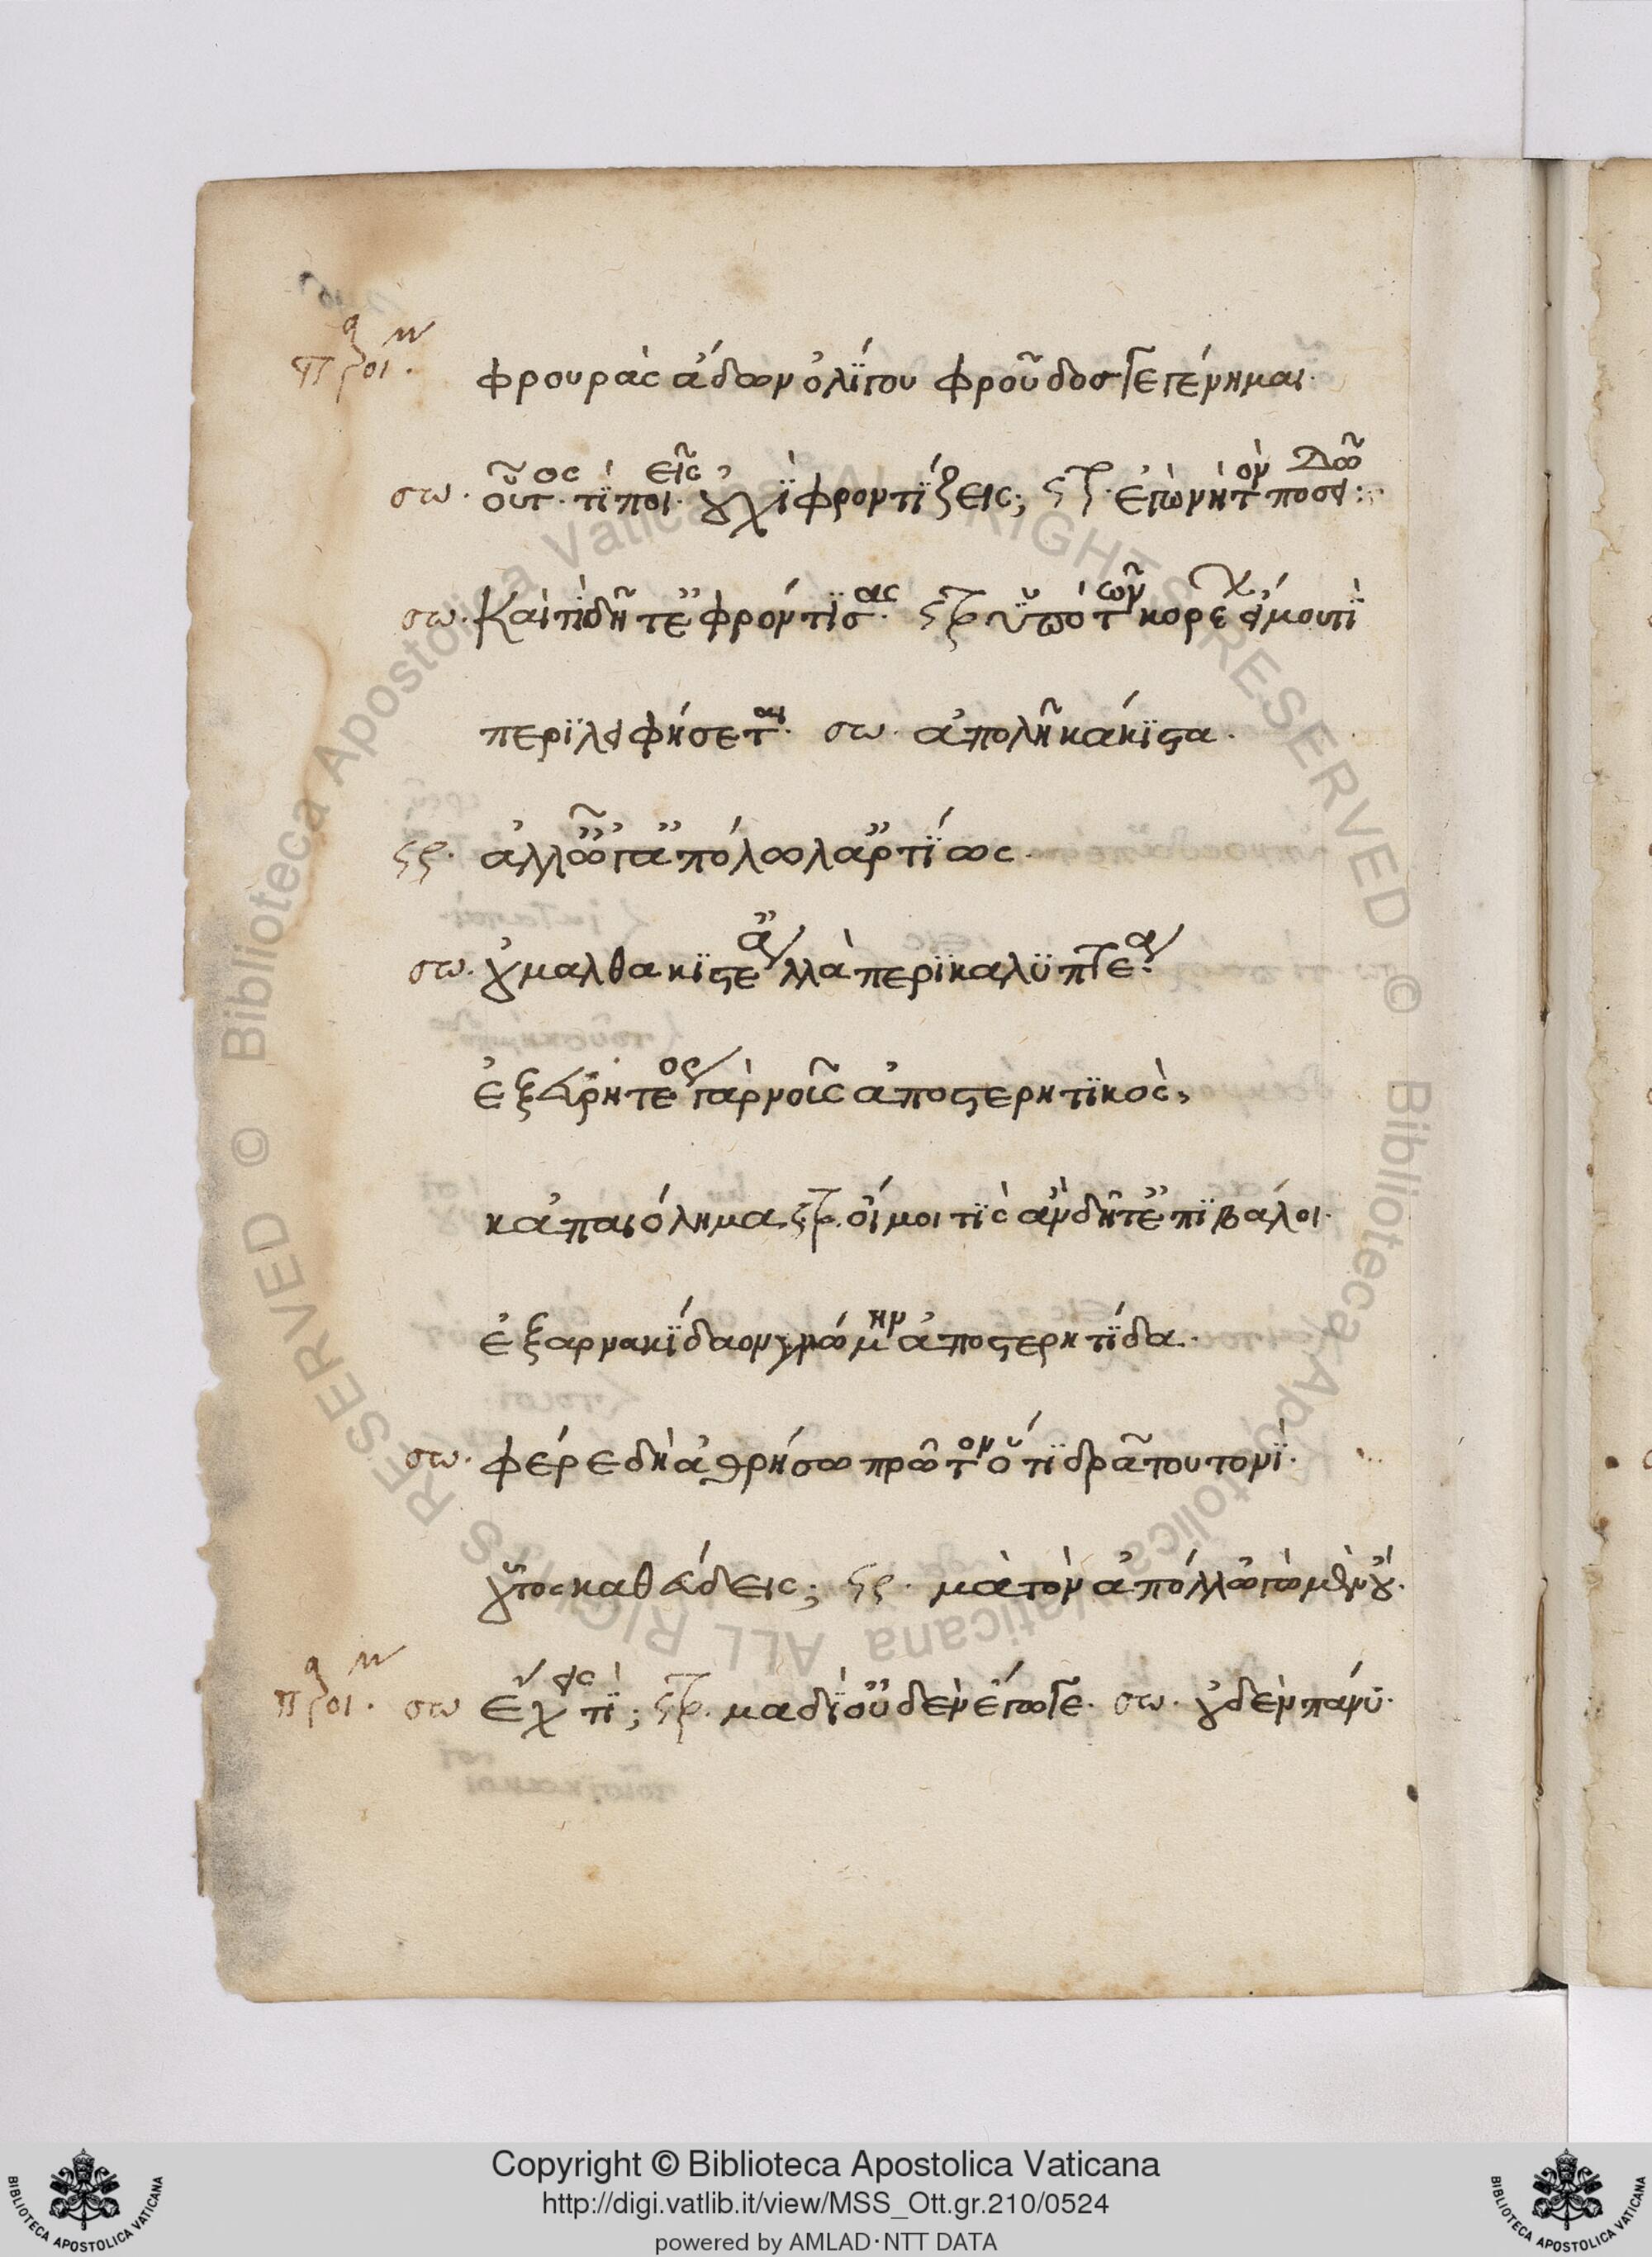 φρουρὰς ἄδων ὀλΐγου φροῦδος γεγένημαι.
σω. οὗτος τΐ ποιεῖς οὐχῒ φροντΐζεις; στρ. ἐγὼ νὴ τὸν ποσειδῶ:
σω. καὶ τί δῆτ' ἐφρόντϊσας. στρ. ὑπὸ τῶν κορεων εἴ μου τῒ
περϊλειφήσεται. σω. ἀπολῆ κάκϊστα.
στρ. ἀλλ' ὦ 'γάθ' ἀπόλωλ' ἀρτΐως.
σω. οὐ μαλθακϊστέ' ἀλλὰ περϊκαλϋπτέα.
ἐξευρητέος γὰρ νοῦς ἀποστερητϊκὸς,
κἀπαιόλημα. στρ. οἴμοι τῒς ἂν δῆτ' ἐπϊβάλοι.
ἐξ ἀρνακΐδων γνώμην ἀποστερητΐδα.
σω. φέρε δὴ ἀθρήσω πρῶτον ὅ τϊ δρᾶ τουτονΐ.
οὗτος καθεύδεις; στρ. μὰ τὸν ἀπόλλω 'γὼ μὲν οὔ.
σω ἔχεις τῒ; στρ. μὰ δῒ' οὐδὲν ἔγωγε. σω. οὐδὲν πάνϋ.
Copyright © Biblioteca Apostolica Vaticana
http://digi.vatlib.it/view/MSS_Ott.gr.210/0524
powered by AMLAD·NTT DATA